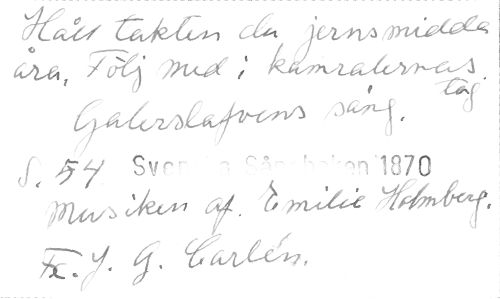 Håll takten du jernsmidda
åra, Följ med i kamraternas
tåg
Galerslafvens sång.
S. 54 Svenska Sångboken 1870
Musiken af. Emilie Holmberg.
Fr. J. G. Carlén.